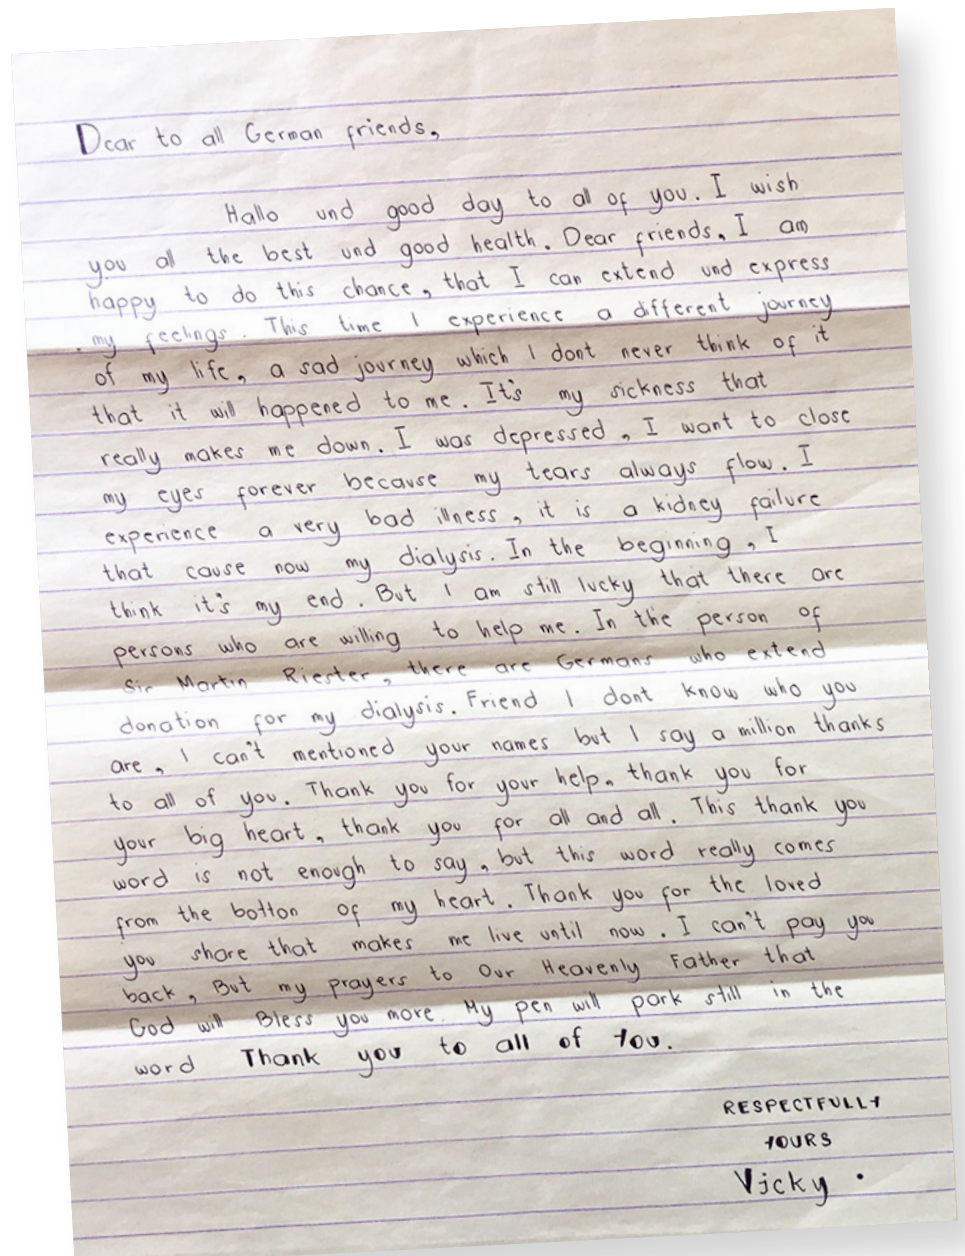 Dear to all German friends,
Hallo und good day to all of you. I wish
you all the best und good health. Dear friends, I am
happy to do this chance, that I can extend und express
my feelings. This time I experience a different journey
of my life, a sad journey which I dont never think of it
that it will happened to me. It's my sickness that
really makes me down. I was depressed, I want to close
my eyes forever because my tears always flow. I
experience a very bad illness, it is a kidney failure
that cause now my dialysis. In the beginning, I
think it's my end. But I am still lucky that there are
persons who are willing to help me. In the person of
Sir Martin Riester, there are Germans who extend
donation for my dialysis. Friend I dont know who you
are, I can't mentioned your names but I say a million thanks
to all of you. Thank you for your help, thank you for
your big heart, thank you for all and all. This thank you
word is not enough to say, but this word really comes
from the botton of my heart. Thank you for the loved
you share that makes me live until now. I can't pay you
back, But my prayers to Our Heavenly Father that
God will Bless you more. My pen will park still in the
word Thank you to all of You.
RESPECTFULLY
YOURS
Vicky.